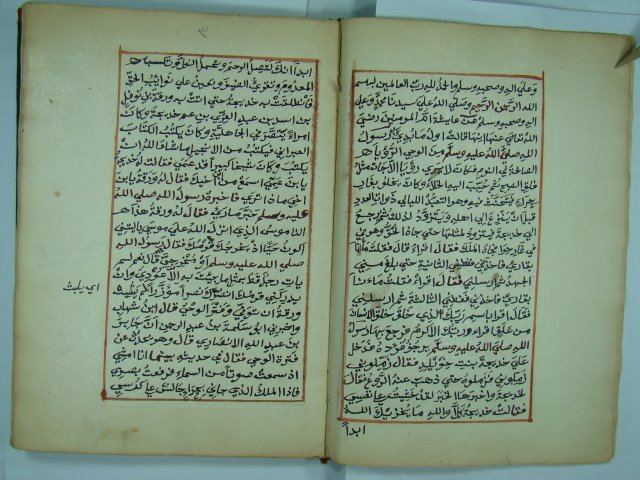 وعلي اله وصحبه وسلم والحمد لله رب العالمين بسم
الله الرحمن الرحيم وصلي الله علي سيدنا محمد وعلي
اله وصحبه وسلم عن عايشة ام المومنين رضي
الله تعالي عنها انها قالت اول ما بدي به رسول
الله صلي الله عليه وسلم من الوحي الرؤيا
الصالحة في النوم فكان لا يري رؤيا الا جات مثل
فلق الصبح ثم حبب اليه الخلاء وكان يخلو بغار
حراء فيتحنث فيه وهو التعبد الليالي ذوات العدد
قبل ان ينزع الي اهله ويتزود لذلك ثم يرجع
الي خديجة فيتزود لمثلها حتي جاه الحق وهو في
غار حراء فجاه الملك فقال اقراء قال فقلت ما انا
بقاري فاخذني فغطني الثانية حتي بلغ مني
الجهد ثم ارسلني فقال اقراء فقلت ما انا
بقاري فاخذني فغطني الثالثة ثم ارسلني
فقال اقراء باسم ربك الذي خلق خلق الانسان
من علق اقراء وربك الاكرم فرجع بها رسول
الله صلي الله عليه وسلم يرجف فواده فدخل
علي خديجة بنت خويلد فقال زملوني
زملوني فزملوه حتي ذهب عنه الروع فقال
لخديجة واخبرها الخبر لقد خشيت علي نفسي
فقالت خديجة كلا والله ما يخزيك الله
ابدا
ابدا انك لتصل الرحم وتحمل الكل وتكسب
المعدوم وتقري الضيف وتعين علي نوايب الحق
فانطلقت به خديجة حتي اتت به ورقة بن نوفل
بن اسد بن عبد العزي بن عم خديجة وكان
امراء تنصر في الجاهلية وكان يكتب الكتاب
العبراني فيكتب من الانجيل ما شاء الله ان
يكتب وكان شيخا كبيرا قد عمي فقالت له خديجة
يا بن عمي اسمع من ابن اخيك فقال له ورقة يا بن
اخي ماذا تري فاخبره رسول الله صلي الله
عليه وسلم خبر ما راه فقال له ورقة هذا
الناموس الذي انزل الله علي موسي يا ليتني
اكون حيا اذ يخرجك قومك فقال رسول الله
صلي الله عليه وسلم او مخرجي هم قال نعم لم
يات رجل قط بمثل ما جيت به الا عودي وان
يدركني يومك انصرك نصرا موزرا ثم لم ينشب
اي يلبث
ورقة ان توفي وفتر الوحي قال ابن شهاب
واخبرني ابو سلمة بن عبد الرحمن ان جابر بن
بن عبد الله الانصاري قال وهو يحدث عن
فترة الوحي فقال في حديثه بينما انا امشي
اذ سمعت صوتا من السماء فرفعت بصري
فاذا الملك الذي جاني بحراء جالس علي كرسي